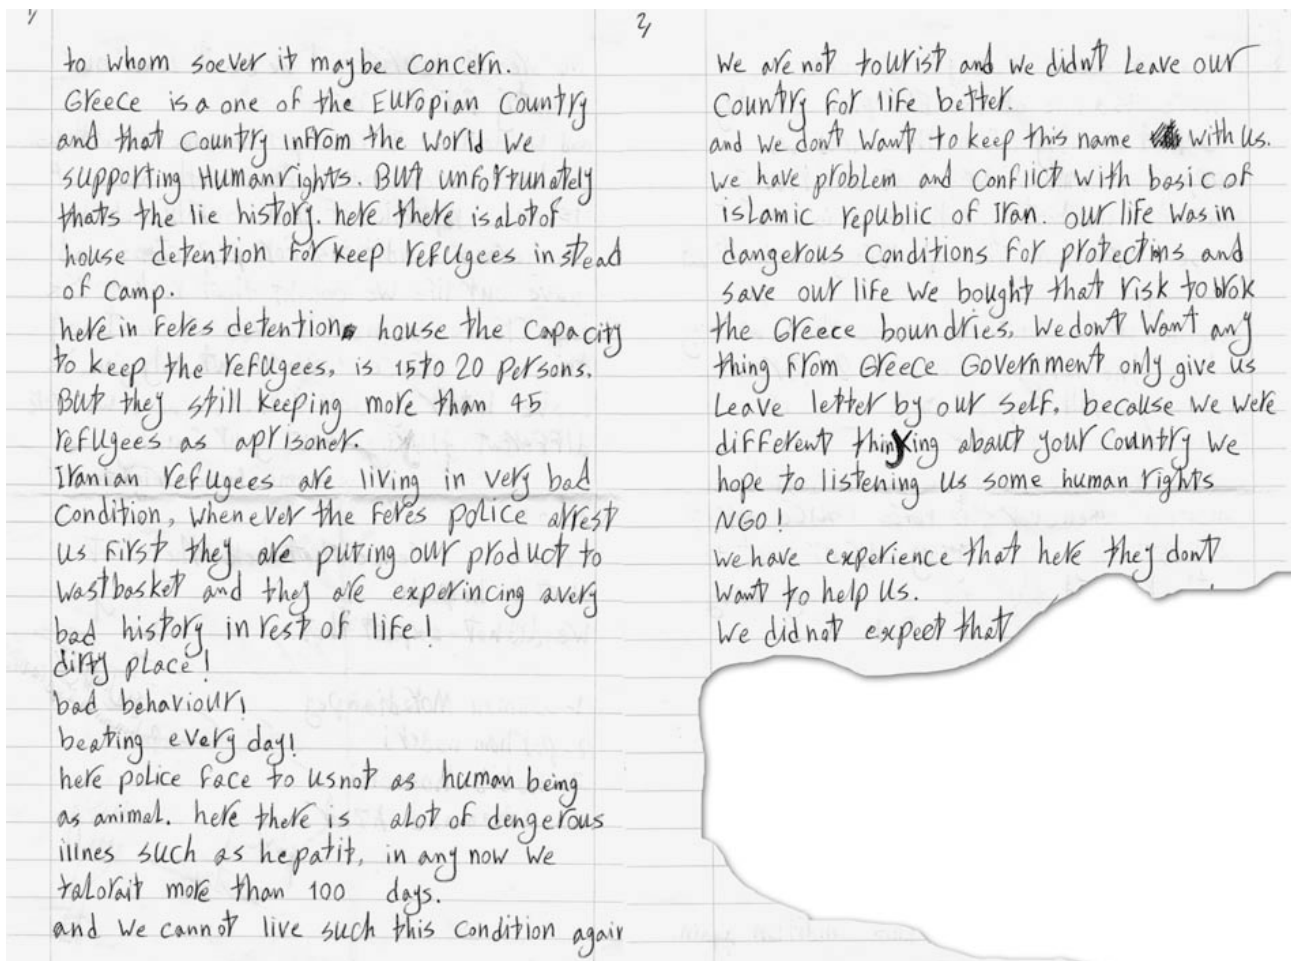 1/
to whom soever it maybe concern.
Greece is a one of the Europian Country
and that Country infrom the World We
supporting Humanrights. BUt unfortunately
thats the lie history. here there is alot of
house detention for keep refugees in stead
of Camp.
here in Feres detention house the Capacity
to keep the refugees, is 15 to 20 persons.
BUt they still keeping more than 45
refugees as aprisoner.
Iranian refugees are living in very bad
Condition, whenever the Feres police arrest
us first they are puting our product to
Wastbasket and they are experincing avery
bad history in rest of life!
dirty place!
bad behaviour!
beating every day!
here police face to us not as human being
as animal. here there is alot of dengerous
illnes such as hepatit, in any now We
talorait more than 100 days.
and We cannot live such this Condition again
2/
We are not tourist and we didnt Leave our
Country for life better.
and we dont Want to keep this name with us.
We have problem and Conflict with basic of
islamic republic of Iran. our life Was in
dangerous Conditions for protections, and
save our life We bought that risk to brok
the Greece boundries. We dont Want any
thing From Greece Government only give us
Leave letter by our self, because we were
different thinking about your Country We
hope to listening us some human rights
NGO!
We have experience that here they dont
Want to help us.
We did not expect that